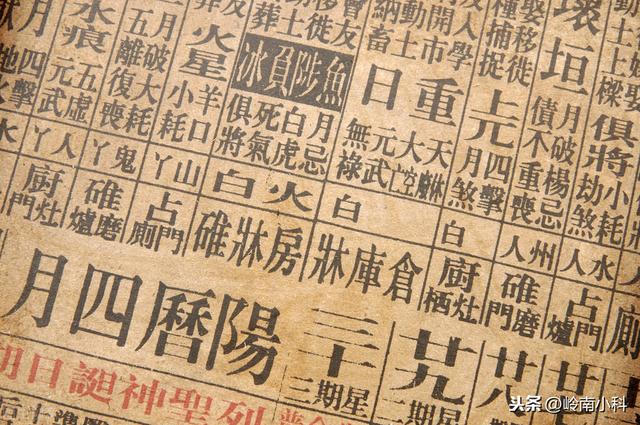 俱將
小耗
劫煞
水人
占門
爐
厠
壞垣
月破楊忌
債不重喪
州人
碓磨
門
娶移徙
種捕捉
上元
四擊
月煞
白
廚灶
栖
人學
開市
動土
納畜
重日
大空
元武
無祿
白
倉庫牀
魚陟負冰
月忌
白虎
死氣
俱將
火白
房牀碓
火星
羊口
小耗
山丫
占門
厠
月破大耗
五離復喪
鬼丫
碓磨
爐
水痕
五虛
元武
人丫
廚灶
門
月
四擊
廿七
廿八
廿九
三十
星期三
陽曆四月
列聖神誕日期
头条 @岭南小科